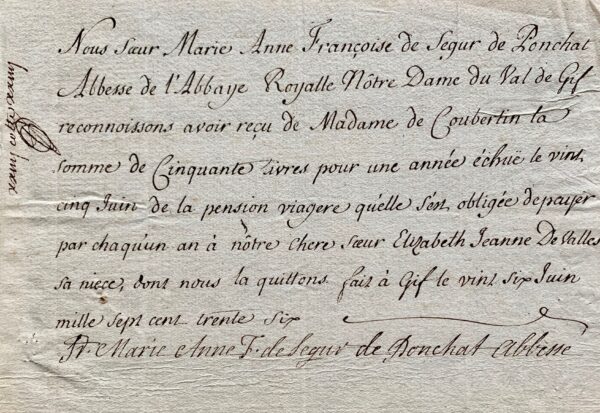 Nous Sœur Marie Anne Françoise de Segur de Ponchat
Abbesse de l'Abbaye Royalle Nôtre Dame du Val de Gif
reconnoissons avoir reçu de Madame de Coubertin la
somme de Cinquante livres pour une année échuë le vint
cinq Juin de la pension viagere qu'elle s'est obligée de païer
par chaqu'un an à nôtre chere sœur Elizabeth Jeanne De Valles
sa niece, dont nous la quittons fait à Gif le vint six Juin
mille sept cent trente six
Sr. Marie Anne F. de Segur de Ponchat Abbesse